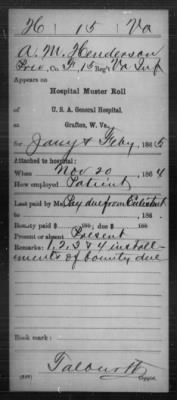 H 15 Va
A. M. Henderson
Priv, Co. F, 15 Reg't Va Inf
Appears on
Hospital Muster Roll
of
U. S. A. General Hospital,
at
Grafton, W. Va.,
for Jany & Feby, 1865
Attached to hospital:
When Nov 20, 1864
How employed Patient
Last paid by Maj. Pay due from Enlistment
to , 186 .
Bounty paid $ 100; due $ 100
Present or absent Present
Remarks: 1, 2, 3 & 4 install-
ments of bounty due
Book mark:
Talbourtt
Copyist.